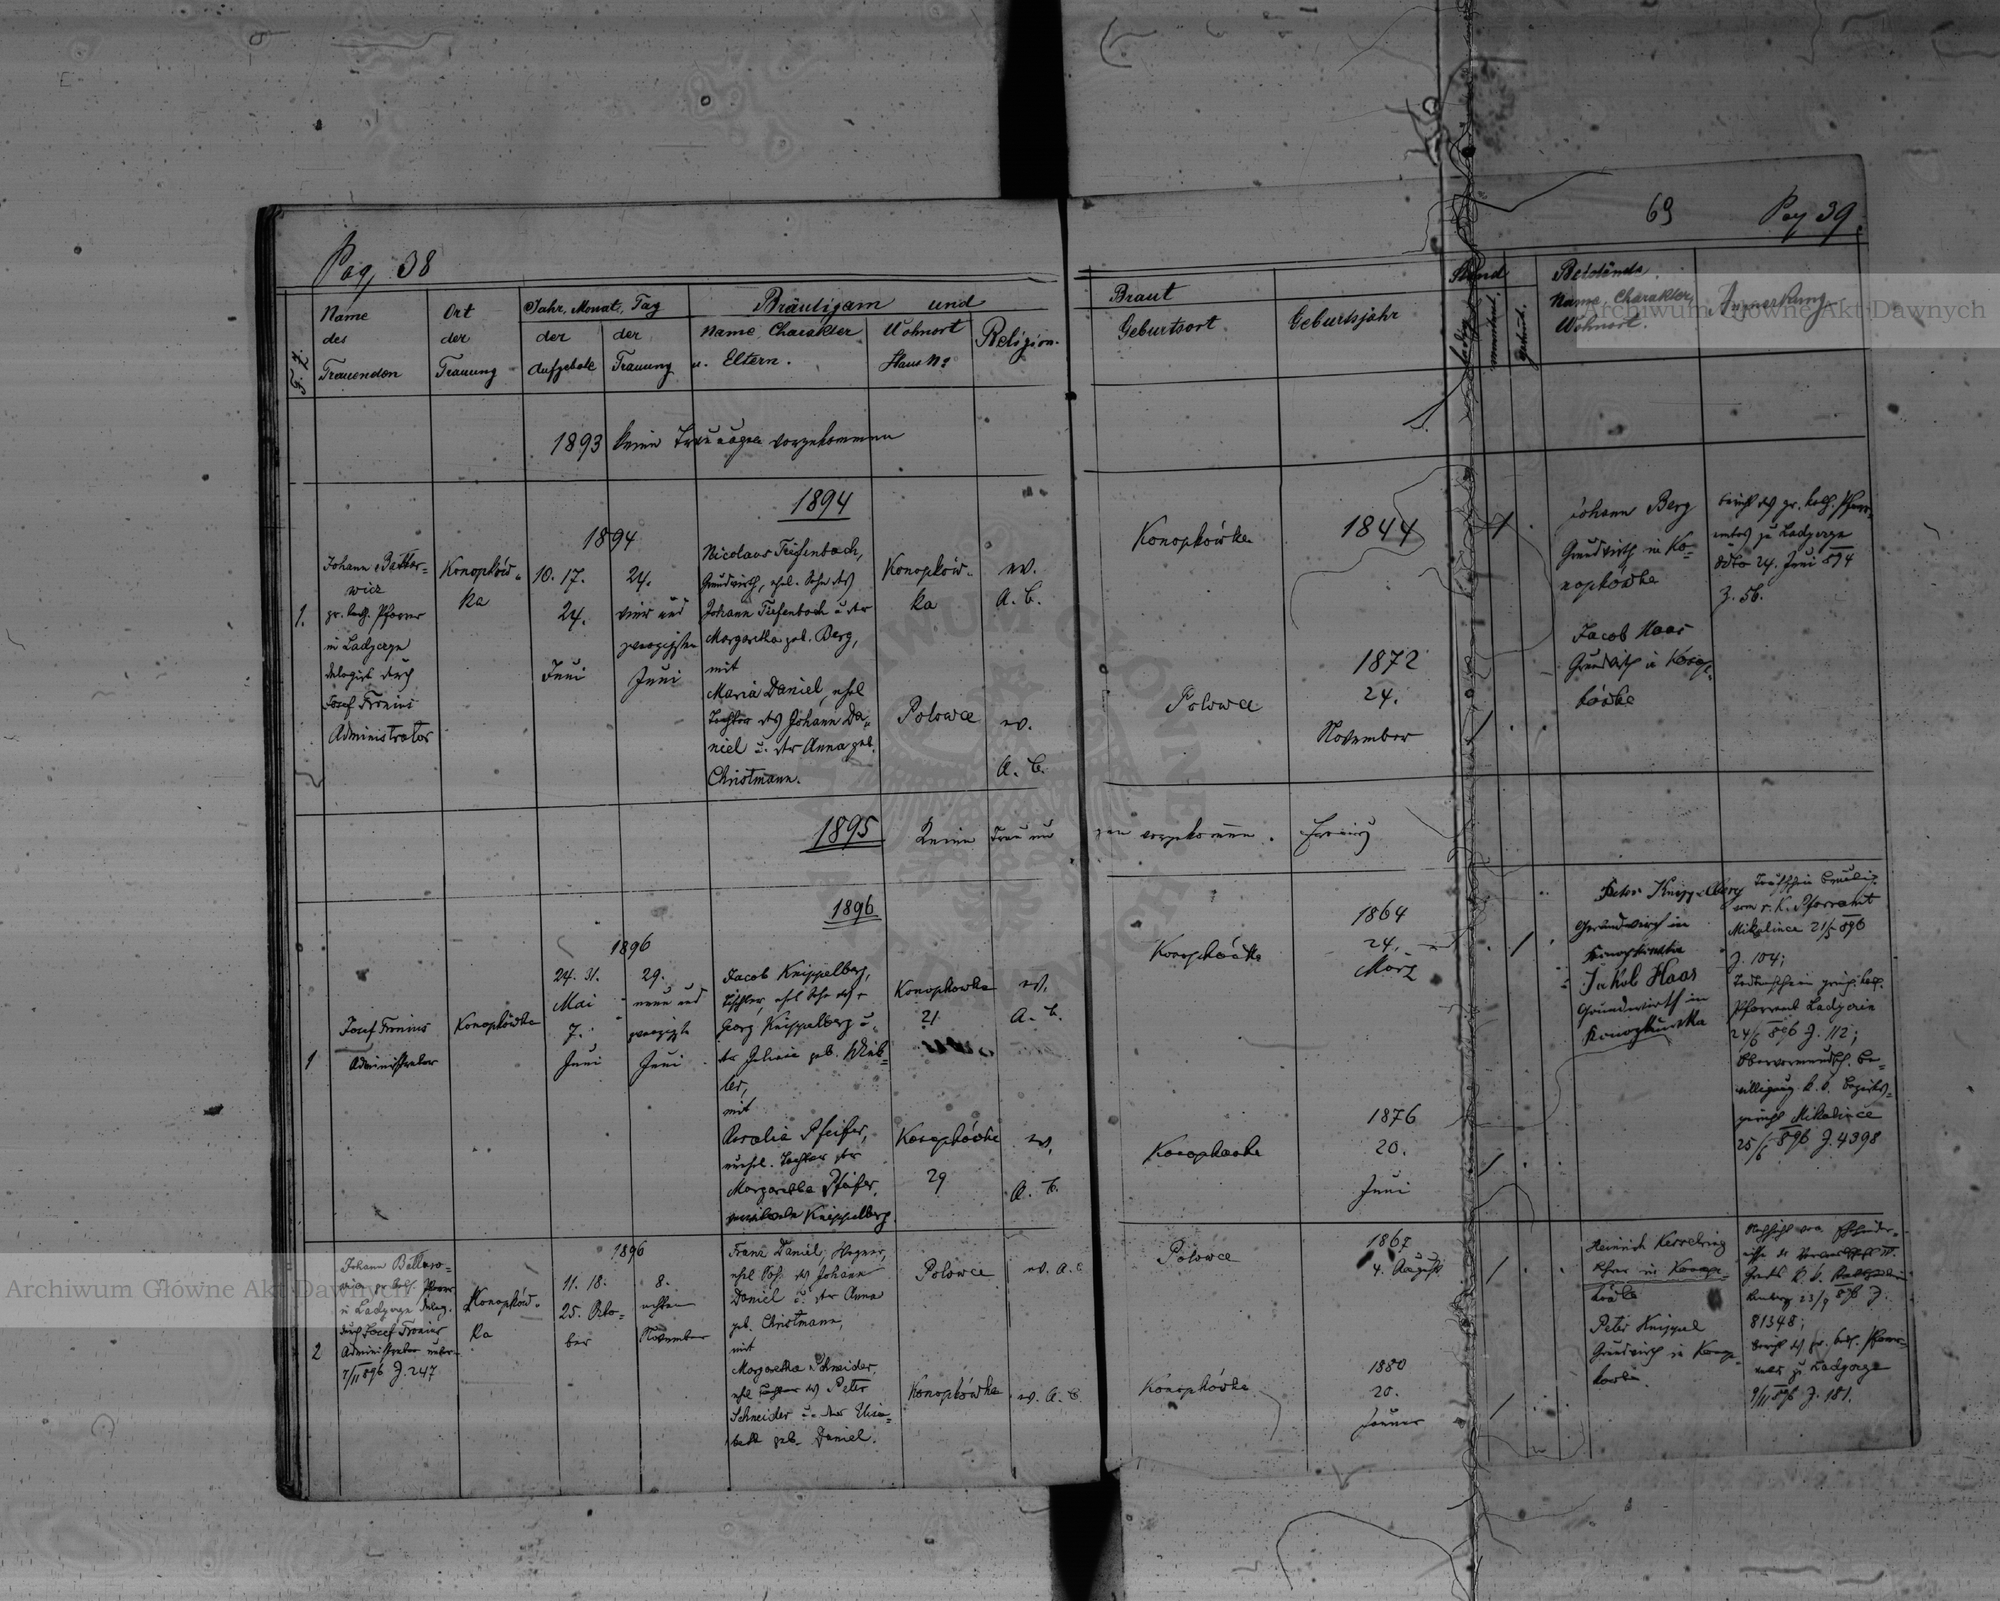 Pag. 38
69
Pag 39
F. Z.
Name
des
Trauenden
Ort
der
Trauung
Jahr, Monat, Tag
der
Aufgebote
der
Trauung
Bräutigam und
Name, Charakter
u. Eltern.
Wohnort
Haus No
Religion.
Braut
Geburtsort
Geburtsjahr
Stand
ledig
verwitwet
getrennt
Beistände
Name Charakter,
Wohnort.
Anmerkung
1893 keine Trauungen vorgekommen
1894
1.
Johann
wicz
gr. kath. Pfarrer
in Ladyczyn
delegirt durch
Josef Fronius
Administrator
Konopków-
ka
1894
10. 17.
24.
Juni
24.
vier und
zwanzigsten
Juni
Nicolaus Tiefenbach,
Grundwirth, ehel. Sohn des
Johann Tiefenbach u. der
Margaretha geb. Berg,
mit
Maria Daniel, ehel
Tochter des Johann Da-
niel u. der Anna geb.
Christmann.
Konopków-
ka
Polowce
ev.
A. C.
ev.
A. C.
Konopkówka
Polowce
1844
1872
24.
November
Johann Berg
Grundwirth in Ko-
nopkówka
Jacob Haas
Grundwirth in Konop-
kówka
Bericht des gr. kath. Pfarr-
amtes zu Ladyczyn
ddto 24. Juni 894
Z. 56.
1895 Keine Trauungen vorgekommen. Fronius
1896
1
Josef Fronius
Administrator
Konopkówka
1896
24. 31.
Mai
7.
Juni
29.
neun und
zwanzigste
Juni
Jacob Knippelberg,
Tischler, ehel Sohn des
Georg Knippelberg u.
der Juliana geb. Wink-
ler,
mit
Rosalia Pfeifer,
unehel. Tochter der
Margaretha Pfeifer,
Knippelberg
Konopkowka
21
Konopkówka
29
ev.
A. C.
ev.
A. C.
Konopkówka
Konopkowka
1864
24.
März
1876
20.
Juni
Peter Knippelberg
Grundwirth in
Konopkówka
Jakob Haas
Grundwirth im
Konopkuwka
Taufschein
vom r. k. Pfarramt
Mikulince 21/5 896
Z. 104;
Pfarramt Ladyczin
24/6 896 Z. 112;
Obervormundsch. Be-
willigung k. k. Bezirks-
gericht Mikulince
25/6 896 Z. 4398
2
Johann
gr. kath. Pfarrer
in Ladyczyn deleg.
durch Josef Fronius
Administrator unter
7/11 896 Z. 247
Konopków-
ka
1896
11. 18.
25. Octo-
ber
8.
achten
November
Franz Daniel, Wagner,
ehel Sohn des Johann
Daniel u. der Anna
geb. Christmann,
mit
Margaretha Schneider,
ehel Tochter des Peter
Schneider u. der Elisa-
beth geb. Daniel.
Polowce
Konopkówka
ev. A. C
ev. A. C
Polowce
Konopkówka
1867
4. August
1880
20.
Januar
Heinrich Kesselring
Lehrer in Konop-
kówka
Peter Knippel
Grundwirth in Konop-
kowka
81348;
Bericht des gr. kath. Pfarr-
amtes zu Ladyczyn
9/11 896 Z. 181.
Archiwum Główne Akt Dawnych
Archiwum Główne Akt Dawnych